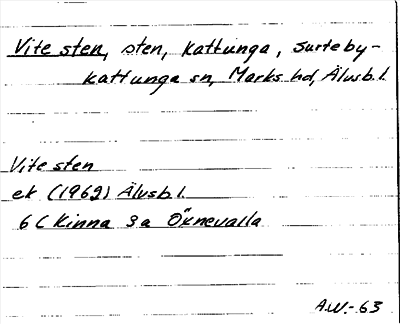 Vite sten, sten, Kattunga, Surteby-
kattunga sn, Marks hd, Älvsb.l.
Vite sten
ek (1962) Älvsb.l.
6C Kinna 3a Öxnevalla
A.W.-63